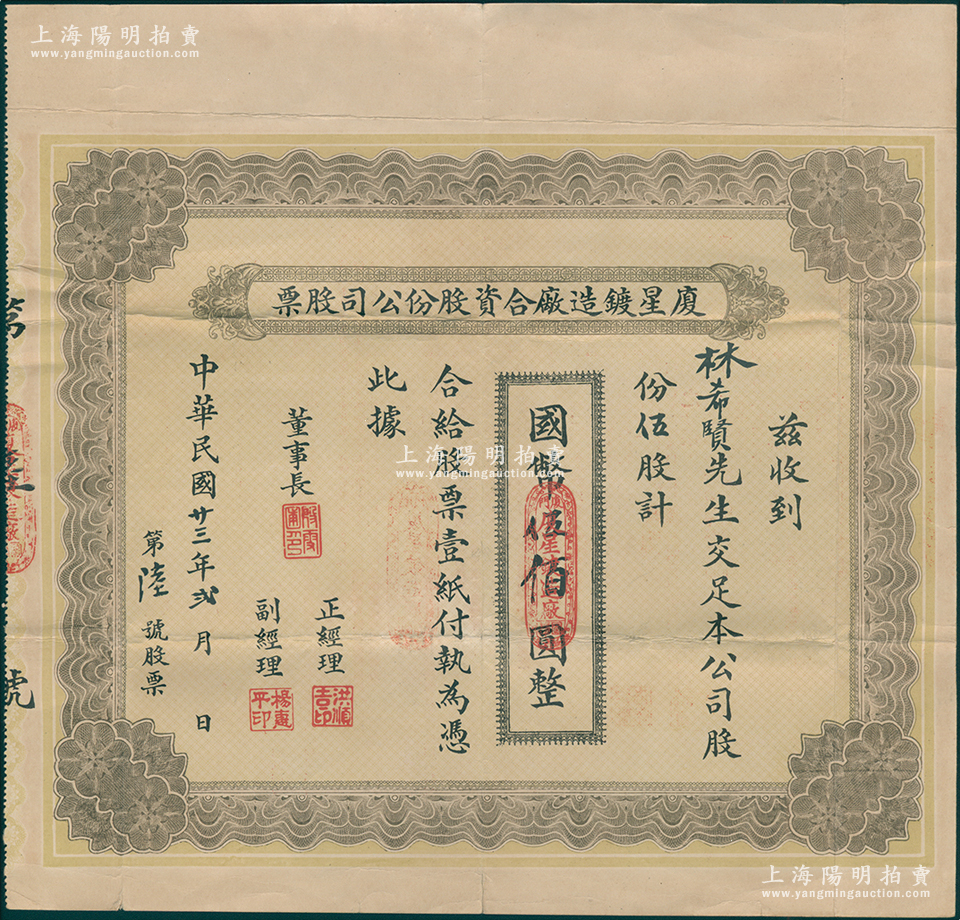 上海陽明拍賣
www.yangmingauction.com
廈星鍍造廠合資股份公司股票
茲收到
林希賢先生交足本公司股
份伍股計
國幣伍佰圓整
合給股票壹紙付執為憑
此據
董事長
正經理
洪順吉印
副經理
楊惠平印
中華民國廿三年弍月 日
第陸號股票
號
上海陽明拍賣
www.yangmingauction.com
上海陽明拍賣
www.yangmingauction.com